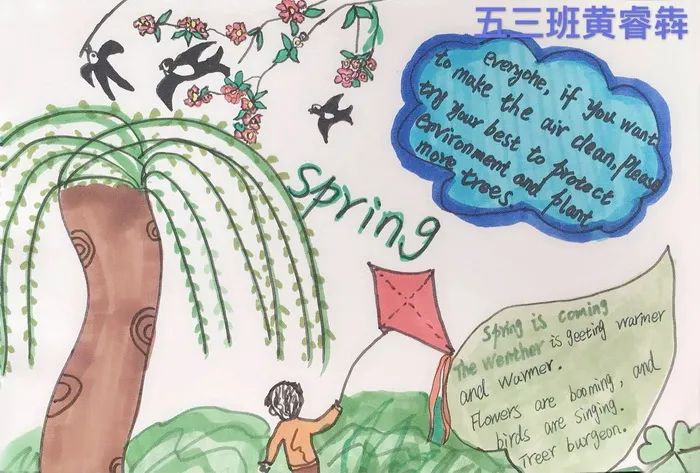 五三班黄睿犇
everyone, if you want
to make the air clean, please
try your best to protect
environment and plant
more trees
spring
Spring is coming
The Wenther is geeting warmer
and warmer.
Flowers are booming, and
birds are singing.
Treer burgeon.